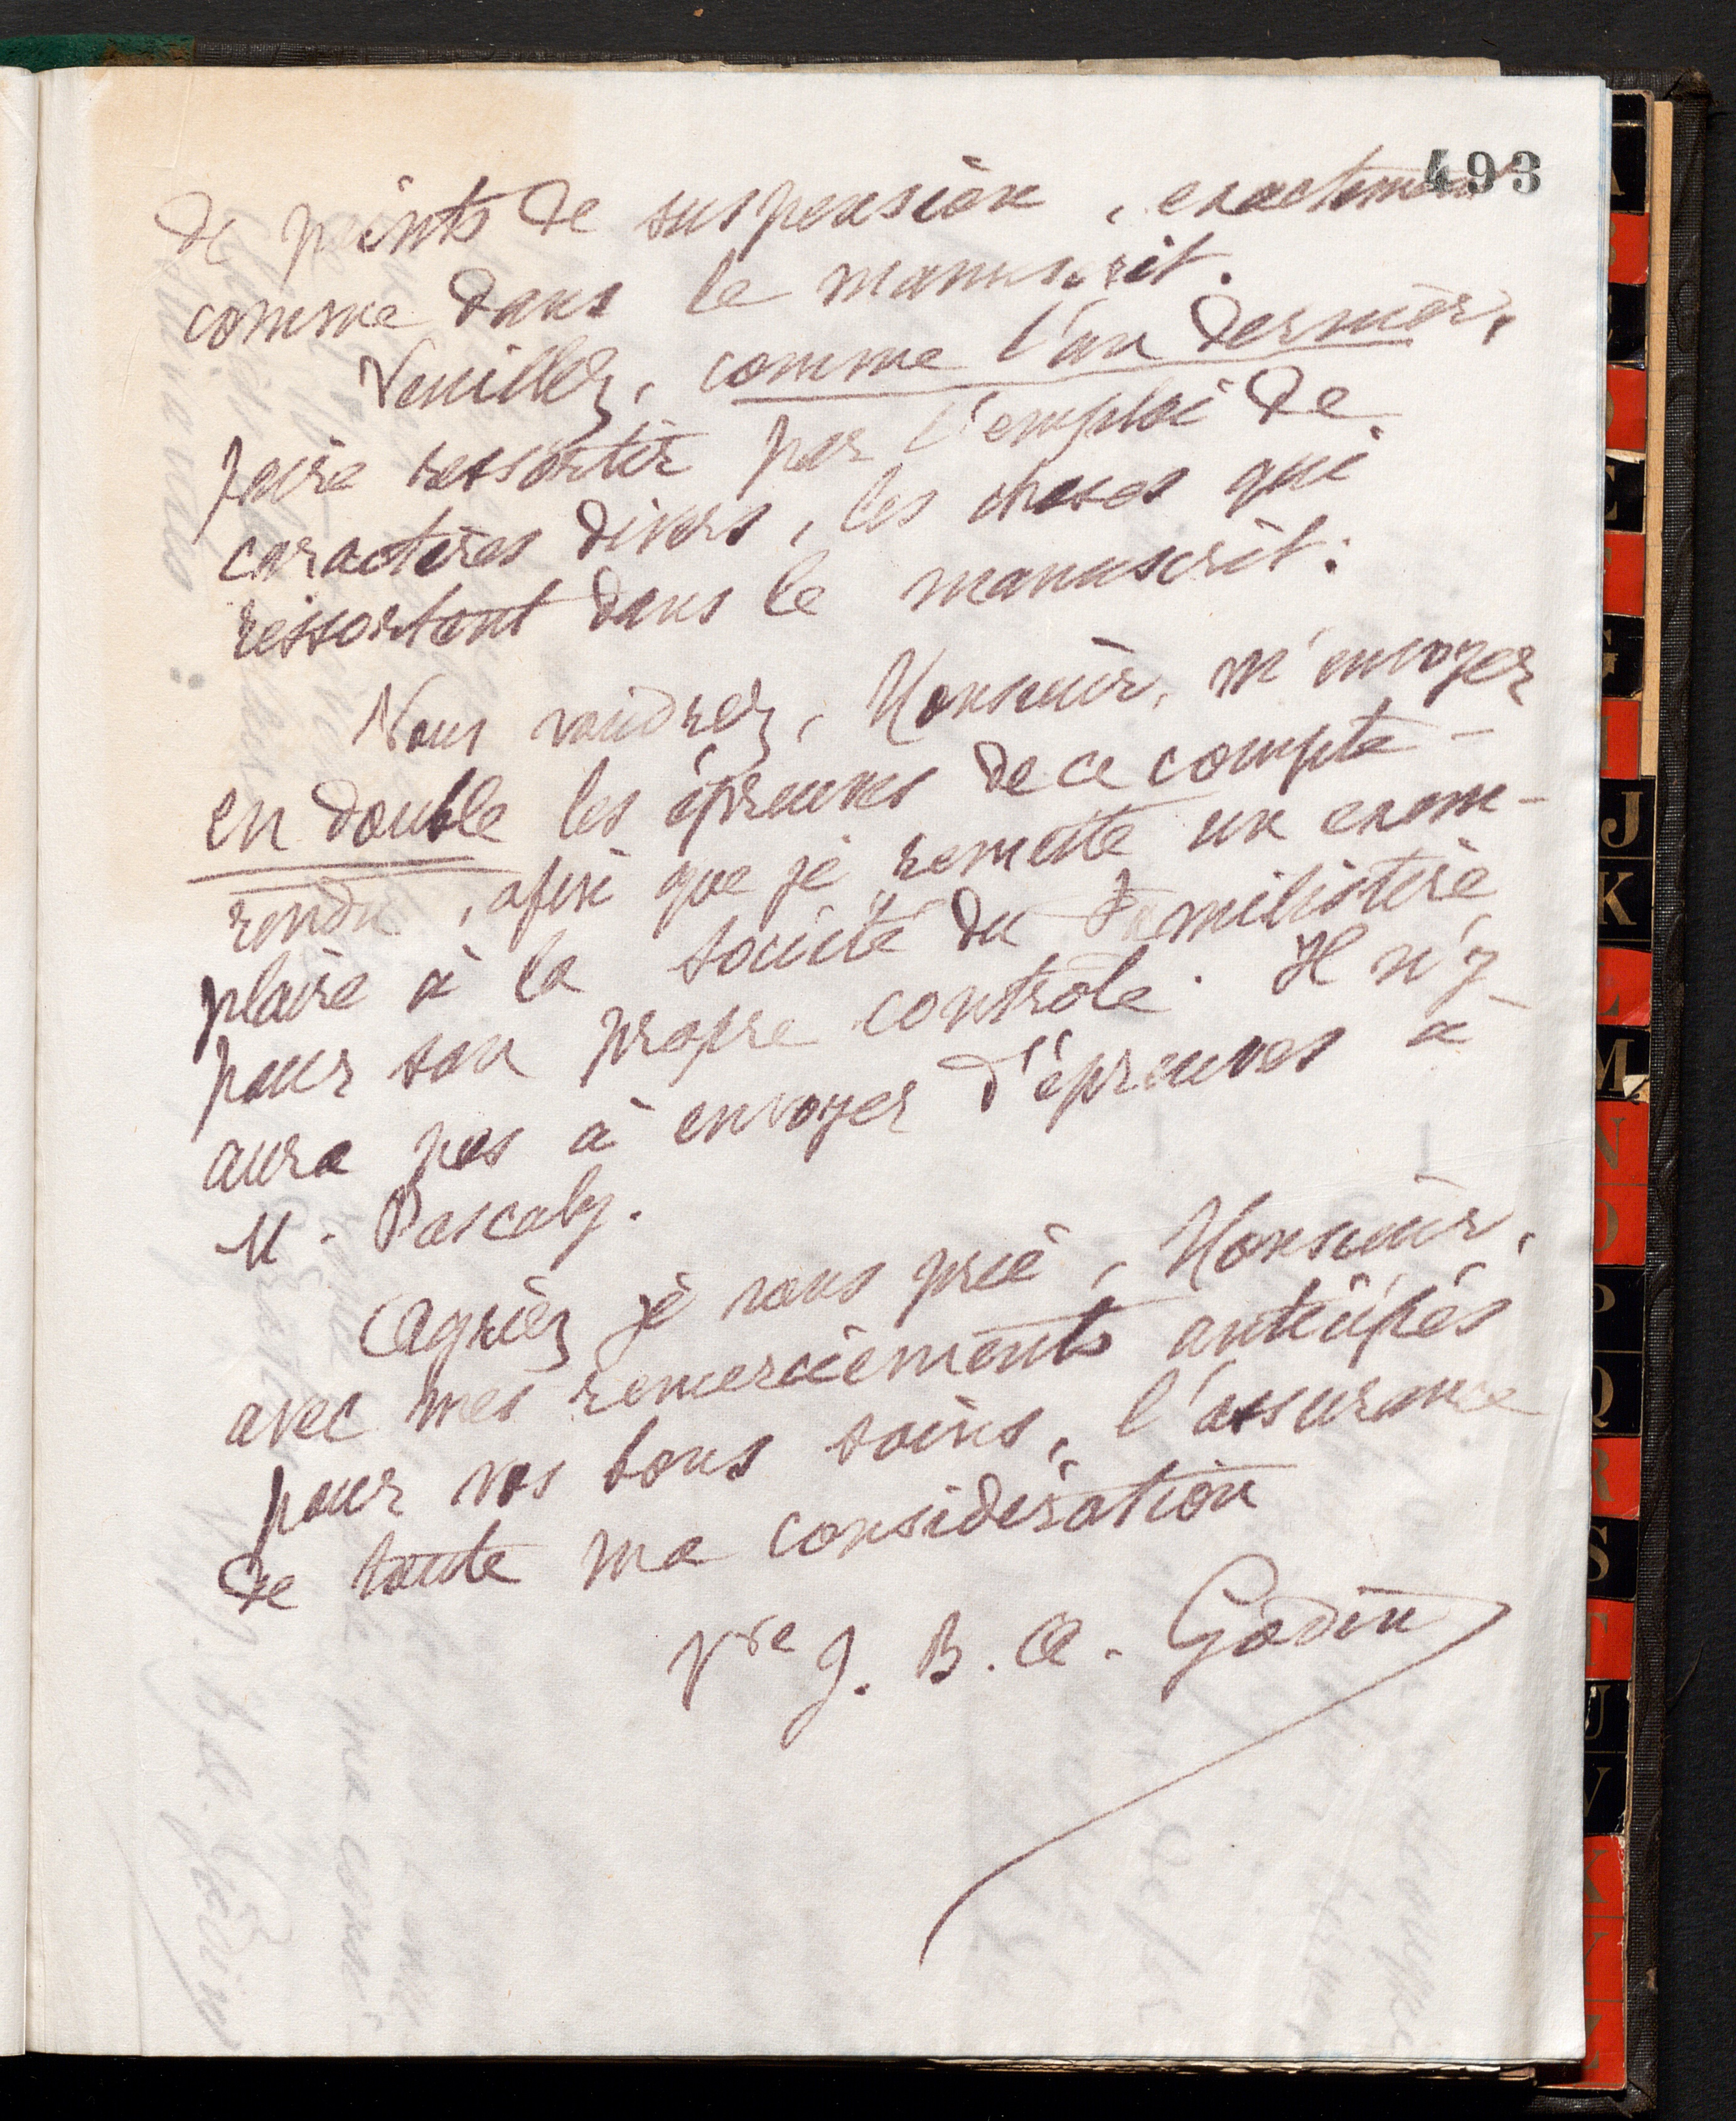 493
de points de suspension, exactement
comme dans le manuscrit.
Veuillez, comme l'an dernier,
faire ressortir par l'emploi de
caractères divers, les choses qui
ressortent dans le manuscrit.
Vous voudrez, Monsieur, m'envoyer
en double les épreuves de ce compte-
rendu, afin que je remette un exem-
plaire à la Société du Familistère
pour son propre contrôle. Il n'y
aura pas à envoyer d'épreuves à
M. Pascaly.
Agréez je vous prie, Monsieur,
avec mes remerciements anticipés
pour vos bons soins, l'assurance
de toute ma considération
Vve J. B. A. Godin
J
K
L
M
N
O
P
Q
R
S
T
U
V